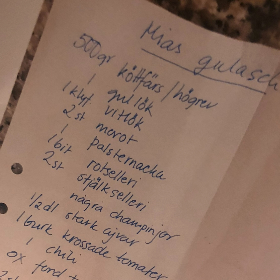 Mias gulasch
500gr köttfärs/högrev
1 gul lök
1 klyf vitlök
2st morot
1 palsternacka
1 bit rotselleri
2st stjälkselleri
några champinjor
1/2 dl stark ajvar
1 burk krossade tomater
1 chili
ox fond t